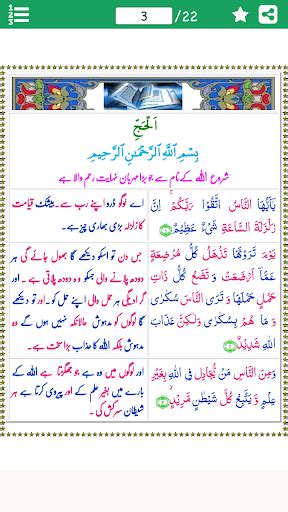 1
2
3
3
/22
اَلْحَجِّ
بِسْمِ اللَّهِ الرَّحْمَٰنِ الرَّحِيمِ
شروع اللہ کے نام سے جو بڑا مہربان نہایت رحم والا ہے
يَٰٓأَيُّهَا النَّاسُ اتَّقُوا رَبَّكُمْ إِنَّ
زَلْزَلَةَ السَّاعَةِ شَيْءٌ عَظِيمٌ ۝١
اے لوگو ڈرو اپنے رب سے۔ بیشک قیامت
کا زلزلہ بڑی بھاری چیز ہے۔
يَوْمَ تَرَوْنَهَا تَذْهَلُ كُلُّ مُرْضِعَةٍ
عَمَّا أَرْضَعَتْ وَ تَضَعُ كُلُّ ذَاتِ
حَمْلٍ حَمْلَهَا وَ تَرَى النَّاسَ سُكَارَى
وَ مَا هُمْ بِسُكَارَى وَلَكِنَّ عَذَابَ
اللَّهِ شَدِيدٌ ۝٢
جس دن تو اسکو دیکھے گا بھول جائے گی ہر
دودھ پلانے والی جسکو وہ دودھ پلاتی ہے اور
گرا دیگی ہر حمل والی اپنے حمل کو۔ اور تو دیکھے
گا لوگوں کو مدہوش حالانکہ نہیں ہوں گے وہ
مدہوش بلکہ اللہ کا عذاب بڑا سخت ہے۔
وَمِنَ النَّاسِ مَنْ يُّجَادِلُ فِي اللَّهِ بِغَيْرِ
عِلْمٍ وَّ يَتَّبِعُ كُلَّ شَيْطَٰنٍ مَّرِيْدٍ ۝٣
اور لوگوں میں وہ ہے جو جھگڑتا ہے اللہ کے
بارے میں بغیر علم کے اور پیروی کرتا ہے ہر
شیطان سرکش کی ۔